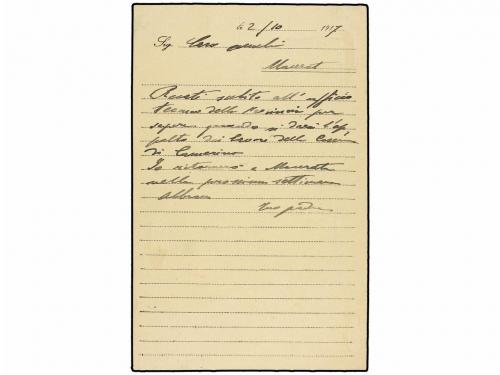 li 2/10 1917
Sig
Macerat
Recati subito all' ufficio
tecnico della Provincia per
sapere quando si darà l'ap
palto dei lavori delle
di Camerino
Io ritornerò a Macerata
nella prossima settimana
Abbrac
tuo padre